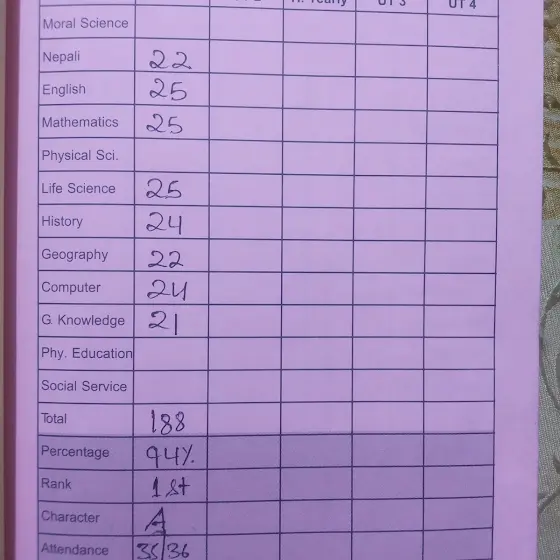 UT 3 UT 4
Moral Science
Nepali 22
English 25
Mathematics 25
Physical Sci.
Life Science 25
History 24
Geography 22
Computer 24
G. Knowledge 21
Phy. Education
Social Service
Total 188
Percentage 94%.
Rank 1st
Character A
Attendance 35/36